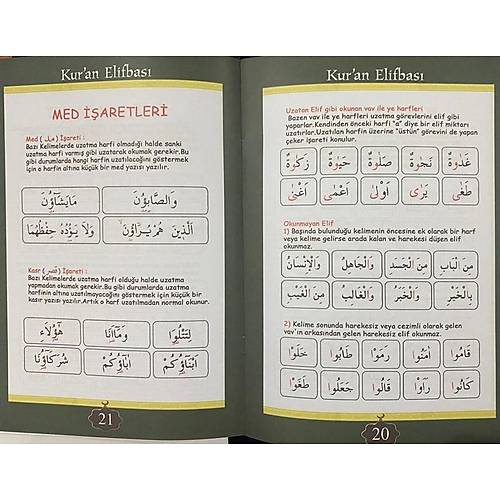 Kur'an Elifbası
MED İŞARETLERİ
Med ( مد ) İşareti :
Bazı Kelimelerde uzatma harfi olmadığı halde sanki
uzatma harfi varmış gibi uzatarak okumak gerekir.Bu
gibi durumlarda hangi harfin uzatılacağını göstermek
için o harfin altına küçük bir med yazısı yazılır.
وَالصَّابِؤُنَ مَايَشَاؤُنَ
اَلَّذِينَ هُمْ يُرَاؤُنَ وَلَا يَؤُدُهُ حِفْظُهُمَا
Kasr ( قصر ) İşareti :
Bazı Kelimelerde uzatma harfi olduğu halde uzatma
yapmadan okumak gerekir.Bu gibi durumlarda uzatma
harfinin altına uzatılmayacağını göstermek için küçük bir
kasır yazısı yazılır.Artık o harf uzatılmadan normal okunur.
لِتَتْلُوَا وَمَااَنَا هٰؤُلَاءِ
اَبْنَاؤُكُمْ اٰبَاؤُكُمْ شُرَكَاؤُنَا
21
Kur'an Elifbası
Uzatan Elif gibi okunan vav ile ye harfleri
Bazen vav ile ye harfleri uzatma görevlerini elif gibi
yaparlar.Kendinden önceki harfi "a" diye bir elif miktarı
uzatırlar.Uzatılan harfin üzerine "üstün" görevini de yapan
çeker işareti konulur.
غَدٰوةٌ نَجٰوةٌ صَلٰوةٌ حَيٰوةٌ زَكٰوةٌ
طَغٰى يَرٰى اَوْلٰى اَعْمٰى اَغْنٰى
Okunmayan Elif
1) Başında bulunduğu kelimenin öncesine ek olarak bir harf
veya kelime gelirse arada kalan ve harekesi düşen elif
okunmaz.
مِنَ الْبَابِ مِنَ الْجَسَدِ وَالْجَاهِلُ وَالْاِنْسَانُ
بِالْخَبْرِ وَالْخَبَرُ وَالْغَالِبُ مِنَ الْغَيْبِ
2) Kelime sonunda harekesiz veya cezimli olarak gelen
vav'ın arkasından gelen harekesiz elif okunmaz.
قَامُوا اٰمَنُوا رَمَوْا طَابُوا خَلَوْا
كَانُوا رَاَوْا قَالُوا جَعَلُوا طَغَوْا
20